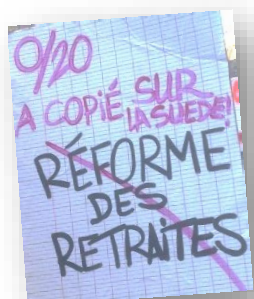 0/20
A COPIÉ SUR
LA SUEDE!
RÉFORME
DES
RETRAITES